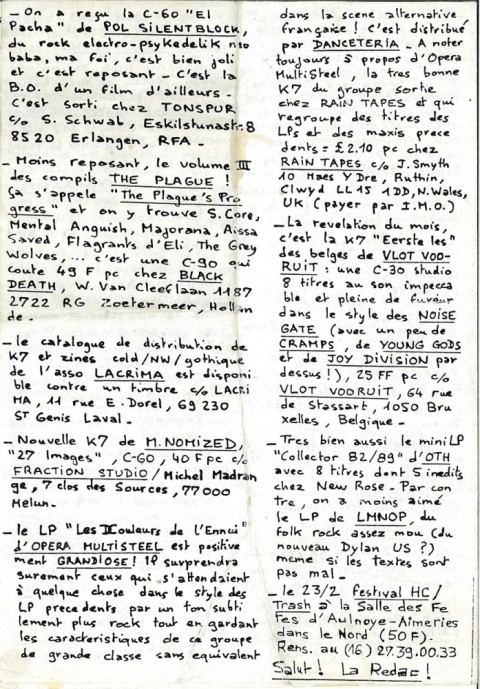 - On a reçu la C-60 "El
Pacha" de POL SILENTBLOCK,
du rock electro-psykedelik néo
baba, ma foi, c'est bien joli
et c'est reposant - C'est la
B.O. d'un film d'ailleurs -
C'est sorti chez TONSPUR
c/o S. Schwab, Eskilstunastr. 8
8520 Erlangen, RFA -
- Moins reposant, le volume III
des compils THE PLAGUE !
Ça s'appele "The Plague's Pro
gress" et on y trouve S.Core,
Mental Anguish, Majorana, Aissa
Saved, Flagrants d'Eli, The Grey
Wolves, ... c'est une C-90 qui
coute 49 F pc chez BLACK
DEATH, W. Van Cleeflaan 1187
2722 RG Zoetermeer, Hollan
de -
- le catalogue de distribution de
K7 et zines cold/NW/gothique
de l'asso LACRIMA est disponi
ble contre un timbre c/o LACRI
MA, 11 rue E. Dorel, 69 230
ST Genis Laval -
- Nouvelle K7 de M.NOMIZED,
"27 Images", C-60, 40 F pc c/o
FRACTION STUDIO / Michel Madran
ge, 7 clos des Sources, 77000
Melun.
- le LP "Les Couleurs de l'Ennui"
d'OPERA MULTISTEEL est positive
ment GRANDIOSE ! Il surprendra
surement ceux qui s'attendaient
à quelque chose dans le style des
LP precedents par un ton subti
lement plus rock tout en gardant
les caracteristiques de ce groupe
de grande classe sans equivalent
dans la scene alternative
française ! C'est distribué
par DANCETERIA - A noter
toujours à propos d'Opera
MultiSteel, la tres bonne
K7 du groupe sortie
chez RAIN TAPES et qui
regroupe des titres des
LPs et des maxis prece
dents = £2.10 pc chez
RAIN TAPES c/o J.Smyth
10 Maes Y Dre, Ruthin,
Clwyd LL15 1DD, N.Wales,
UK (payer par I.M.O.)
- La revelation du mois,
c'est la K7 "Eerste les"
des belges de VLOT VOO-
RUIT : une C-30 studio
8 titres au son impecca
ble et pleine de fureur
dans le style des NOISE
GATE (avec un peu de
CRAMPS, de YOUNG GODS
et de JOY DIVISION par
dessus !), 25 FF pc c/o
VLOT VOORUIT, 64 rue
de Stassart, 1050 Bru
xelles, Belgique -
- Tres bien aussi le mini LP
"Collector 82/89" d'OTH
avec 8 titres dont 5 inedits
chez New Rose - Par con
tre, on a moins aimé
le LP de LMNOP, du
folk rock assez mou (du
nouveau Dylan US ?)
meme si les textes sont
pas mal -
- le 23/2 festival HC/
Trash à la Salle des Fe
tes d'Aulnoye-Aimeries
dans le Nord (50 F).
Rens. au (16) 27.39.00.33
Salut ! La Redac !